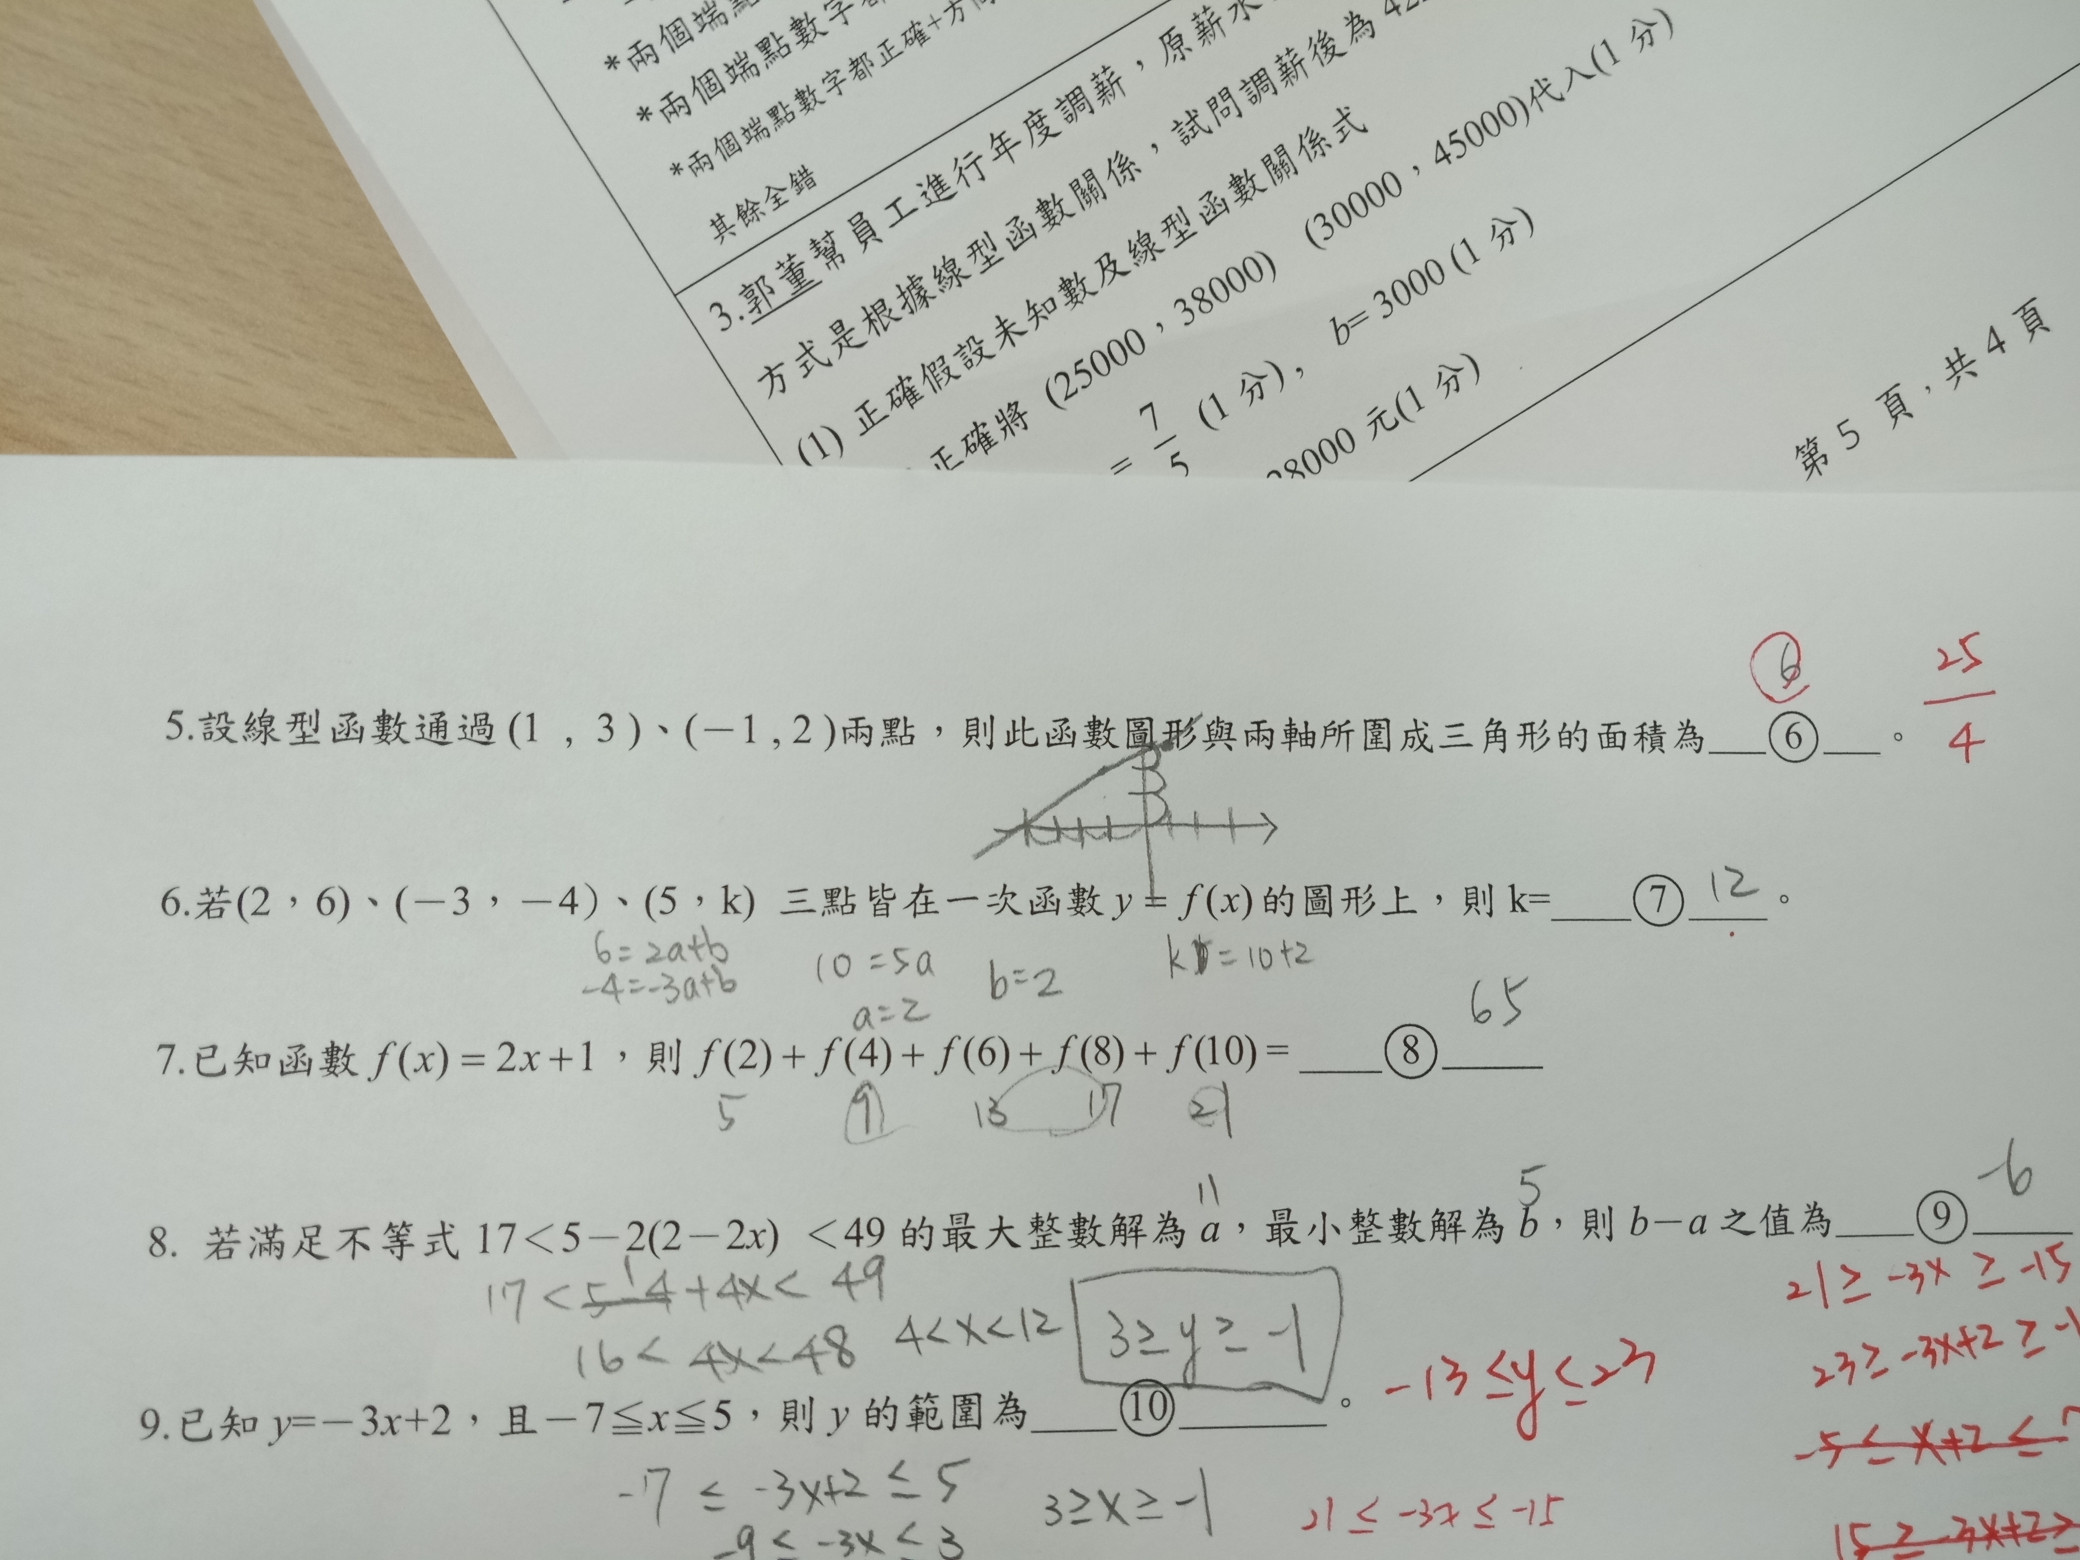 *兩個端點
*兩個端點數字都
*兩個端點數字都正確+方向
其餘全錯
3.郭董幫員工進行年度調薪，原薪水
方式是根據線型函數關係，試問調薪後為 42
(1) 正確假設未知數及線型函數關係式
正確將 (25000，38000) (30000，45000)代入(1 分)
= 7/5 (1 分)， b= 3000 (1 分)
28000 元(1 分)
第 5 頁，共 4 頁
6 25/4
5.設線型函數通過 (1 , 3 )、(－1 , 2 )兩點，則此函數圖形與兩軸所圍成三角形的面積為 ⑥ 。
6.若(2，6)、(－3，－4)、(5，k) 三點皆在一次函數 y = f(x) 的圖形上，則 k= ⑦ 12 。
6=2a+b 10=5a b=2 k=10+2
-4=-3a+b
a=2
65
7.已知函數 f(x) = 2x+1，則 f(2)+ f(4)+ f(6)+ f(8)+ f(10)= ⑧
5 9 13 17 21
11 5 -6
8. 若滿足不等式 17＜5－2(2－2x) ＜49 的最大整數解為 a，最小整數解為 b，則 b－a 之值為 ⑨
17 < 5-4+4x < 49 21 ≥ -3x ≥ -15
1
16 < 4x < 48 4<x<12 3≥y≥-1 -13 ≤y≤23 23≥ -3x+2 ≥ -1
9.已知 y=－3x+2，且－7≦x≦5，則 y 的範圍為 ⑩ 。
-5 ≤ x+2 ≤ 7
-7 ≤ -3x+2 ≤ 5 3≥x≥-1 21 ≤ -3x ≤ -15
-9 ≤ -3x ≤ 3 15 ≥ -3x+2 ≥